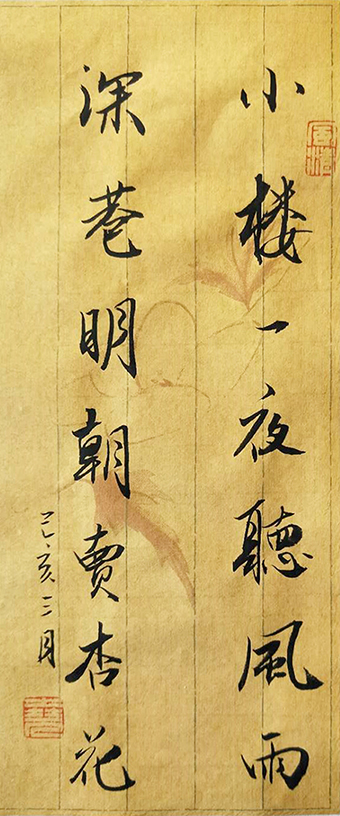 小楼一夜聽風雨
深巷明朝賣杏花
己亥三月